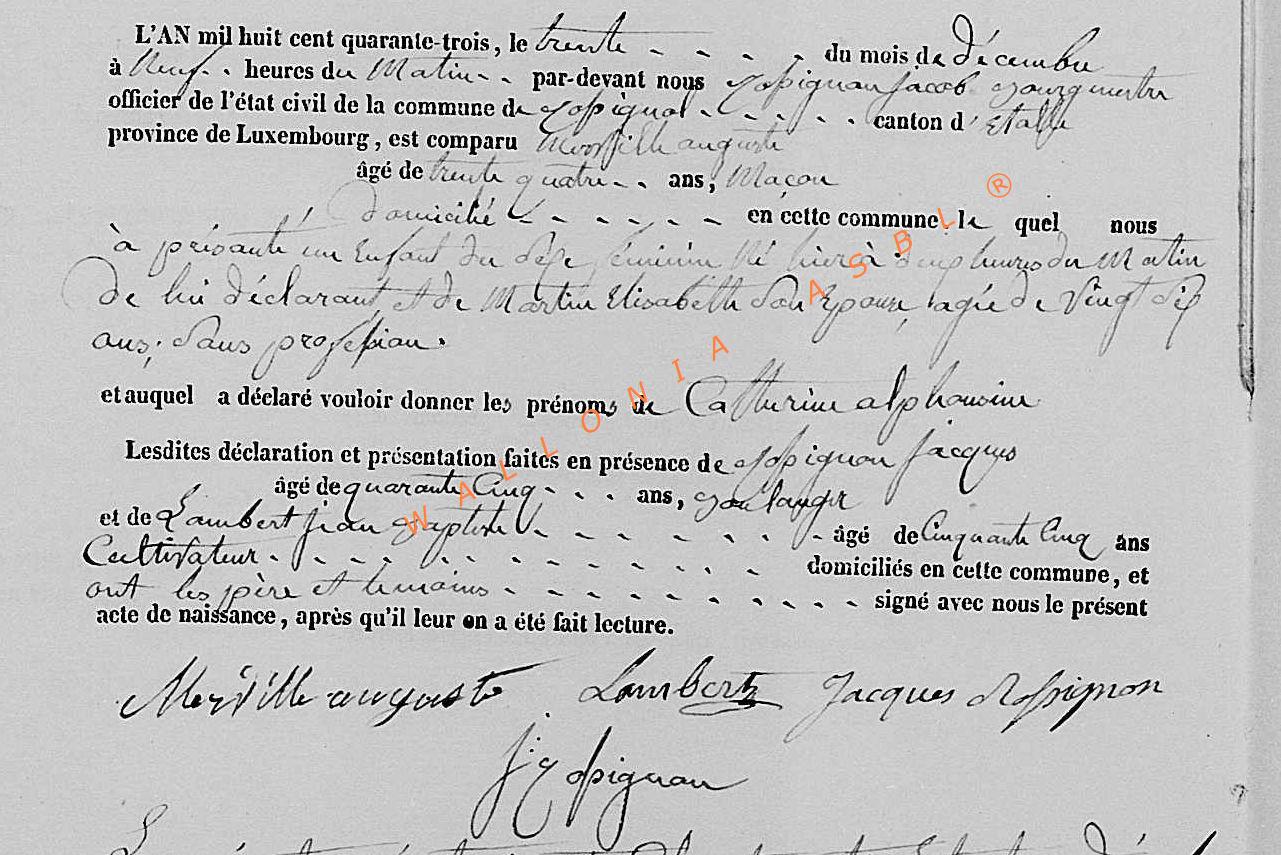 L'AN mil huit cent quarante-trois, le trente - - - - du mois de Décembre
à Neuf - heures du Matin - - par-devant nous Rossignon Jacob Bourgmestre
officier de l'état civil de la commune de Rossignol - - - - - canton d'Etalle
province de Luxembourg, est comparu auguste
âgé de trente quatre - - ans, Maçon
domicilié - - - - - - en cette commune lequel nous
à présanté un Enfant du séxe féminin Né hier à heures du Matin
de lui déclarant et de Martin Elisabeth Son Epouse, agée de Vingt Sept
ans; Sans profession.
et auquel a déclaré vouloir donner les prénoms de Catherine alphonsine
Lesdites déclaration et présentation faites en présence de Rossignon Jacques
âgé de quarante Cinq - - - ans, Boulanger
et de Lambert Jean Baptiste - - - - - - - âgé de Cinquante Cinq ans
Cultivateur - - - - - - - - - - - domiciliés en cette commune, et
ont les père et temoins - - - - - - - - - - signé avec nous le présent
acte de naissance, après qu'il leur en a été fait lecture.
auguste Lambert Jacques Rossignon
J. Rossignon
WALLONIA ASBL ®